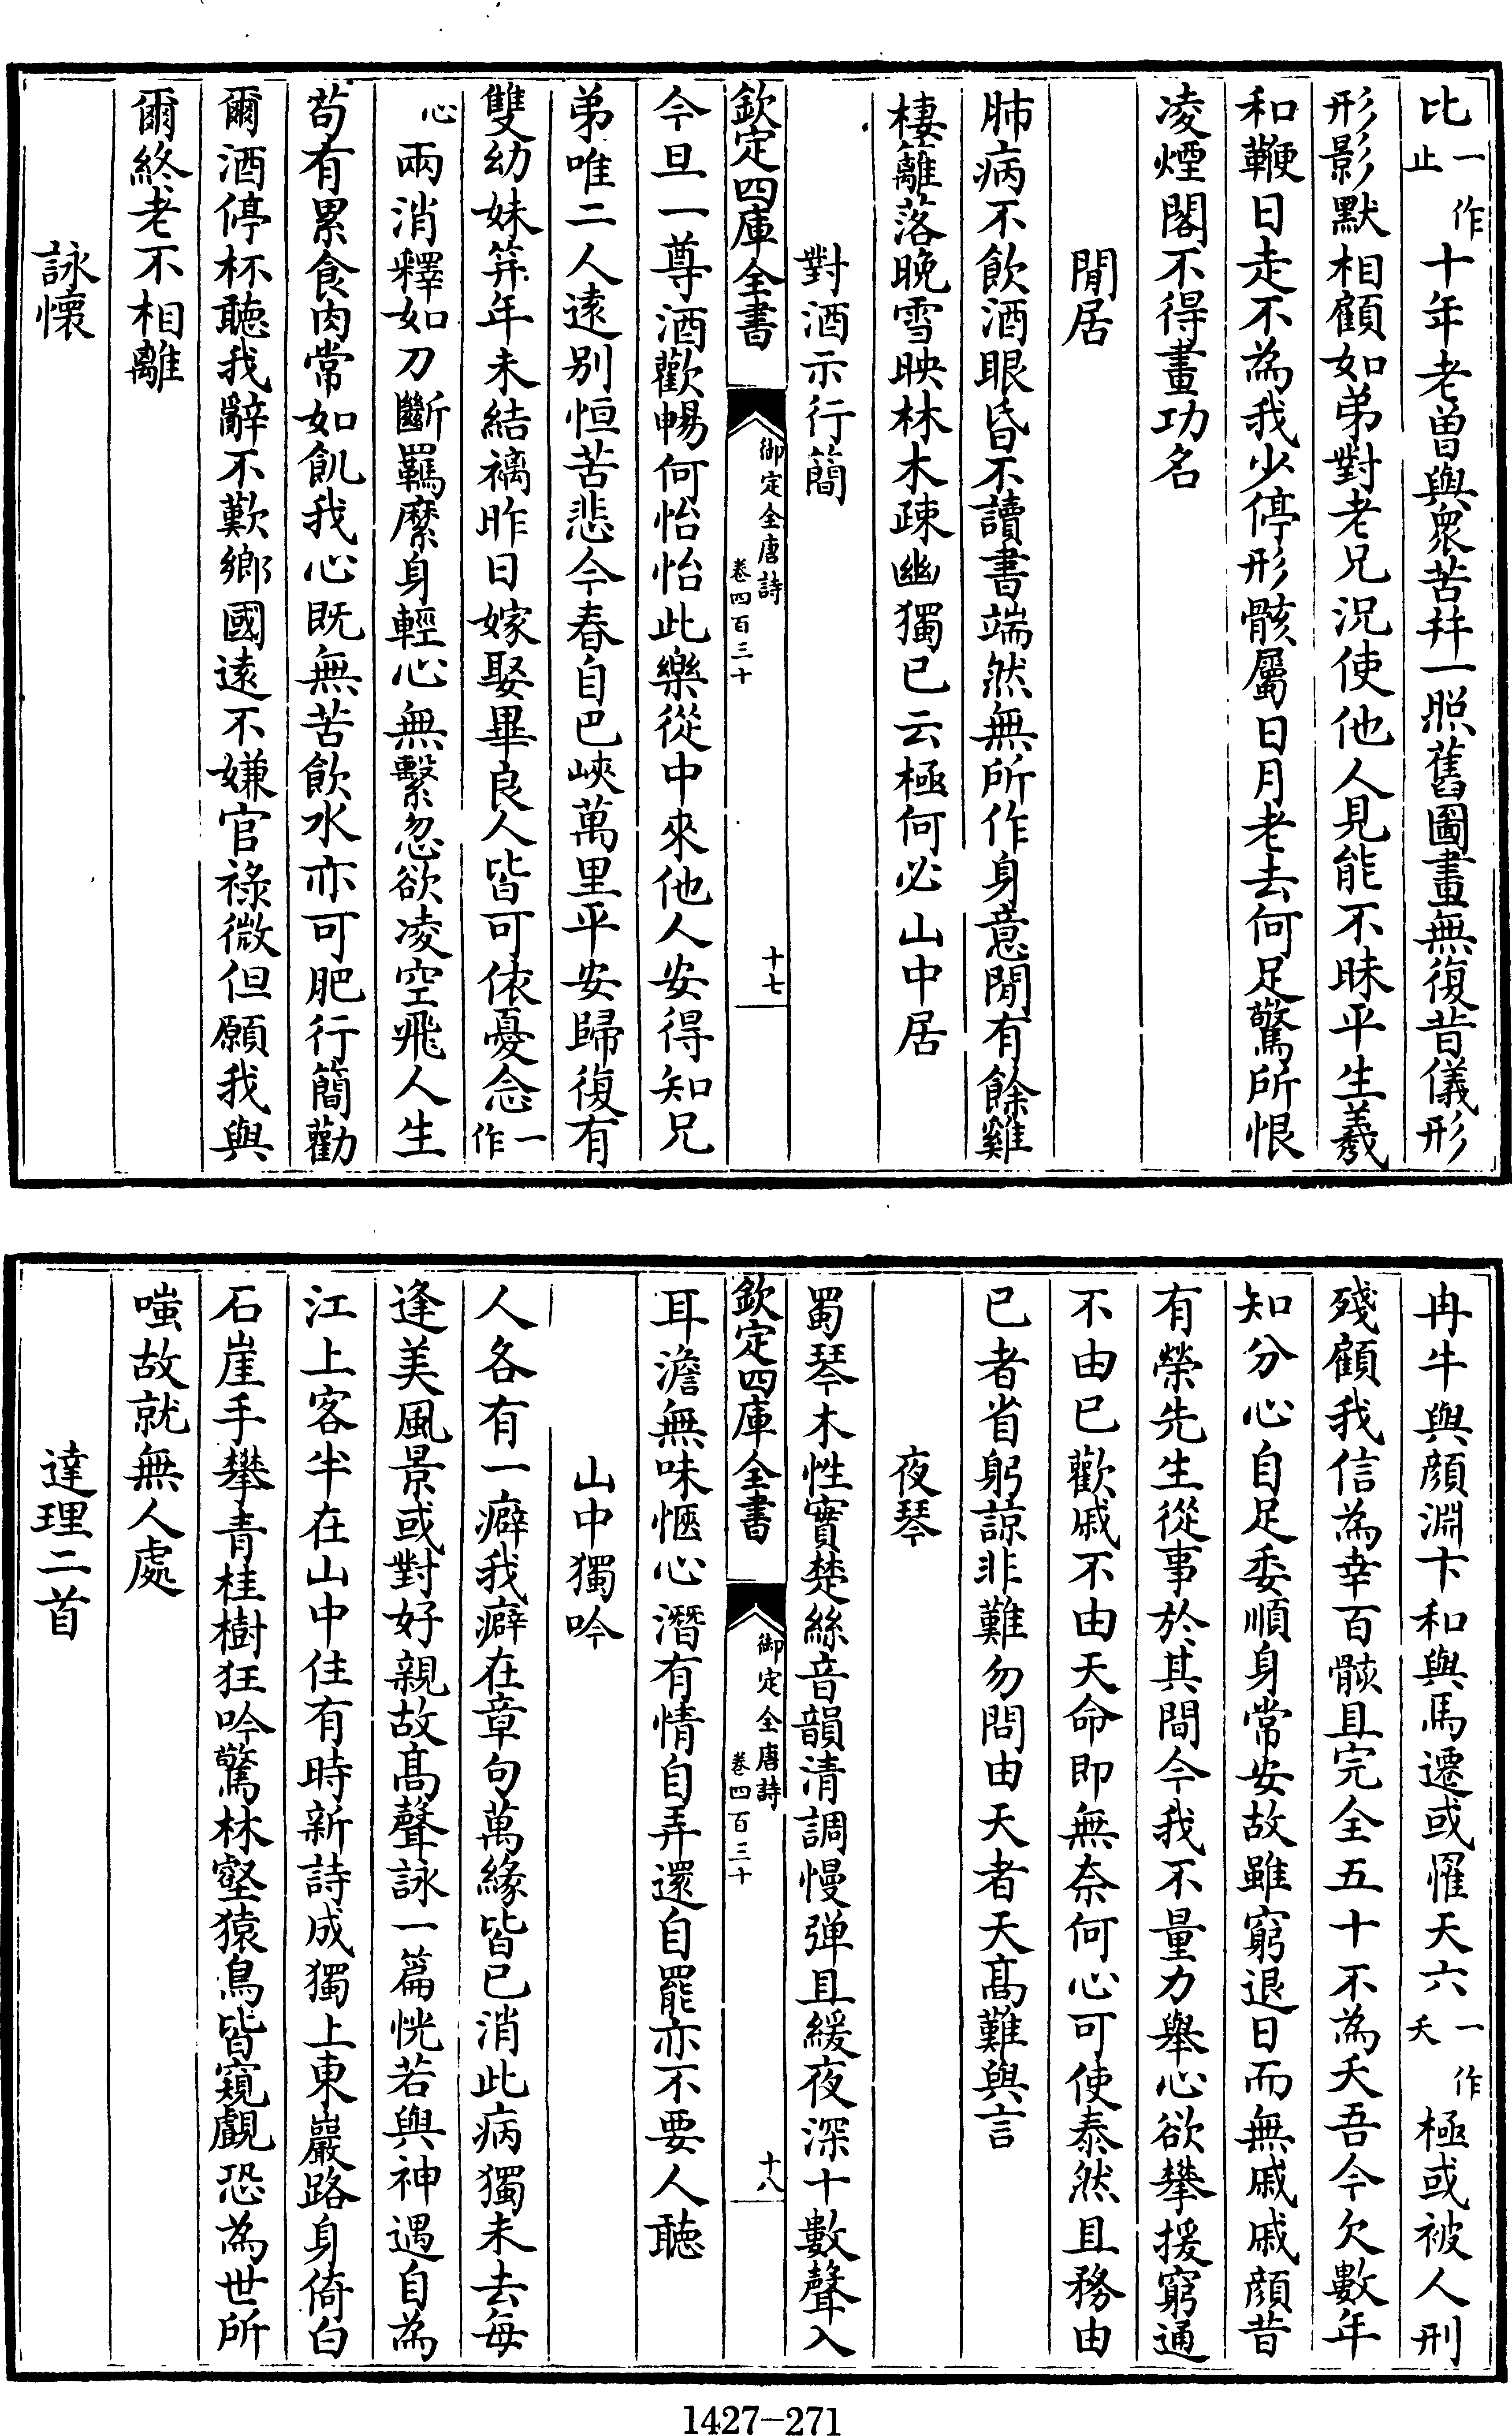 比一作止十年老曽與衆苦幷一照舊圖畫無復昔儀形
形影默相顧如弟對老兄況使他人見能不昧平生羲
和鞭日走不為我少停形骸屬日月老去何足驚所恨
凌煙閣不得畫功名
閒居
肺病不飲酒眼昏不讀書端然無所作身意閒有餘雞
棲籬落晚雪映林木疎幽獨已云極何必山中居
對酒示行簡
欽定四庫全書
御定全唐詩
卷四百三十
十七
今旦一尊酒歡暢何怡怡此樂從中來他人安得知兄
弟唯二人遠别恒苦悲今春自巴峽萬里平安歸復有
雙幼妹筓年未結褵昨日嫁娶畢良人皆可依憂念一作
心兩消釋如刀斷羈縻身輕心無繫忽欲凌空飛人生
苟有累食肉常如飢我心既無苦飲水亦可肥行簡勸
爾酒停杯聽我辭不歎鄉國遠不嫌官祿微但願我與
爾終老不相離
詠懷
冉牛與顔淵卞和與馬遷或罹天六一作夭極或被人刑
殘顧我信為幸百骸且完全五十不為夭吾今欠數年
知分心自足委順身常安故雖窮退日而無戚戚顔昔
有榮先生從事於其間今我不量力舉心欲攀援窮通
不由已歡戚不由天命即無奈何心可使泰然且務由
已者省躬諒非難勿問由天者天髙難與言
夜琴
蜀琴木性實楚絲音韻清調慢弹且緩夜深十數聲入
欽定四庫全書
御定全唐詩
卷四百三十
十八
耳澹無味愜心潛有情自弄還自罷亦不要人聽
山中獨吟
人各有一癖我癖在章句萬緣皆已消此病獨未去每
逢美風景或對好親故髙聲詠一篇恍若與神遇自為
江上客半在山中住有時新詩成獨上東巖路身倚白
石崖手攀青桂樹狂吟驚林壑猿鳥皆窺覰恐為世所
嗤故就無人處
達理二首
1427-271